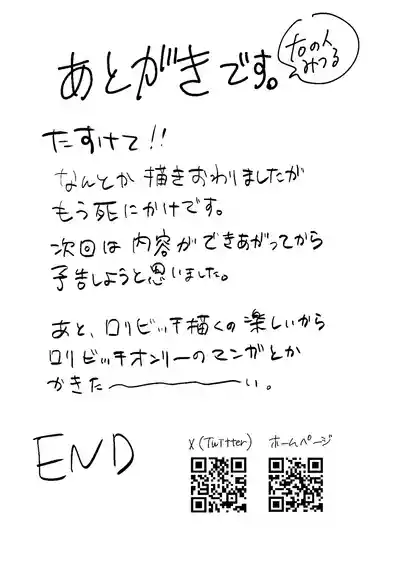 あとがきです。
なの人
みつる
たすけて!!
なんとか描きおわりましたが
もう死にかけです。
次回は内容ができあがってから
予告しようと思いました。
あと、ロリビッチ描くの楽しいから
ロリビッチオンリーのマンガとか
かきた〜い。
END
X(Twitter)
ホームページ